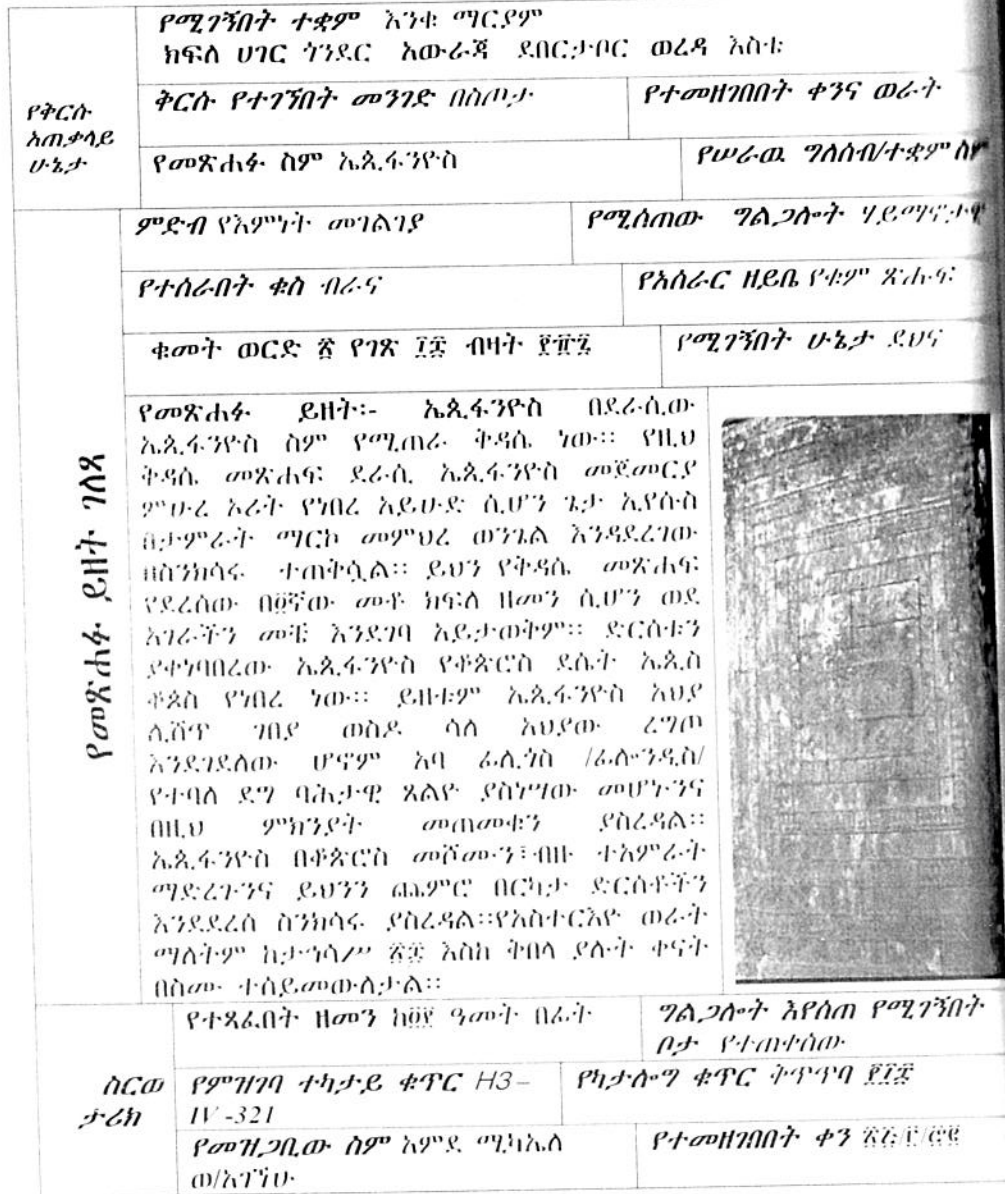 የሚገኝበት ተቋም እንቁ ማርያም
ክፍለ ሀገር ጎንደር አውራጃ ደበርታቦር ወረዳ እስቴ
የቅርሱ አጠቃላይ ሁኔታ
ቅርሱ የተገኘበት መንገድ በስጦታ
የተመዘገበበት ቀንና ወራት
የመጽሐፉ ስም ኤጲፋንዮስ
የሠራዉ ግለሰብ/ተቋም ስም
የመጽሐፉ ይዘት ገለጻ
ምድብ የእምነት መገልገያ
የሚሰጠው ግልጋሎት ሃይማኖታዊ
የተሰራበት ቁስ ብራና
የአሰራር ዘይቤ የቁም ጽሑፍ
ቁመት ወርድ ፳ የገጽ ፲፰ ብዛት
የሚገኝበት ሁኔታ ደህና
የመጽሐፉ ይዘት፡- ኤጲፋንዮስ በደራሲው
ኤጲፋንዮስ ስም የሚጠራ ቅዳሴ ነው። የዚህ
ቅዳሴ መጽሐፍ ደራሲ ኤጲፋንዮስ መጀመርያ
ምሁረ ኦሪት የነበረ አይሁድ ሲሆን ጌታ ኢየሱስ
በታምራት ማርኮ መምህረ ወንጌል እንዳደረገው
በስንክሳሩ ተጠቅሷል። ይህን የቅዳሴ መጽሐፍ
የደረሰው በ፬ኛው መቶ ክፍለ ዘመን ሲሆን ወደ
አገራችን መቼ እንደገባ አይታወቅም። ድርሰቱን
ያቀነባበረው ኤጲፋንዮስ የቆጵሮስ ደሴት ኤጲስ
ቆጶስ የነበረ ነው። ይዘቱም ኤጲፋንዮስ አህያ
ሊሸጥ ገበያ ወስዶ ሳለ አህያው ረግጦ
እንደገደለው ሆኖም አባ ፊሊጎስ /ፊሎንዲስ/
የተባለ ደግ ባሕታዊ ጸልዮ ያስነሣው መሆኑንና
በዚህ ምክንያት መጠመቁን ያስረዳል።
ኤጲፋንዮስ በቆጵሮስ መሾሙን፣ብዙ ተአምራት
ማድረጉንና ይህንን ጨምሮ በርካታ ድርሰቶችን
እንደደረሰ ስንክሳሩ ያስረዳል።የአስተርእዮ ወራት
ማለትም ከታኅሳሥ ፳፰ እስከ ቅበላ ያሉት ቀናት
በስሙ ተሰይመውለታል።
ስርወ ታሪክ
የተጻፈበት ዘመን ዓመት በፊት
ግልጋሎት እየሰጠ የሚገኝበት
ቦታ የተጠቀሰው
የምዝገባ ተካታይ ቁጥር H3-
IV-321
የካታሎግ ቁጥር ቅጥጥባ
የመዝጋቢው ስም አምደ ሚካኤል
ወ/አገኘሁ
የተመዘገበበት ቀን